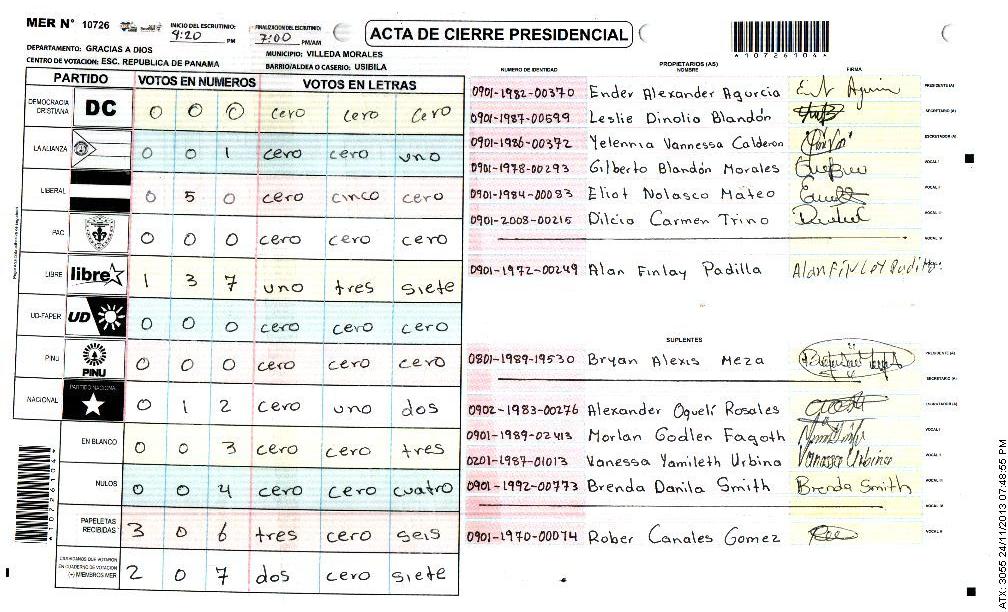 MER N° 10726 INICIO DEL ESCRUTINIO: 4:20 PM FINALIZACION DEL ESCRUTINIO: 7:00 PM/AM ACTA DE CIERRE PRESIDENCIAL
*10726104*
DEPARTAMENTO: GRACIAS A DIOS MUNICIPIO: VILLEDA MORALES
CENTRO DE VOTACION: ESC. REPUBLICA DE PANAMA BARRIO/ALDEA O CASERIO: USIBILA
PARTIDO VOTOS EN NUMEROS VOTOS EN LETRAS
DEMOCRACIA CRISTIANA DC 0 0 0 cero cero cero
LA ALIANZA 0 0 1 cero cero uno
LIBERAL 0 5 0 cero cinco cero
PAC 0 0 0 cero cero cero
LIBRE libre 1 3 7 uno tres siete
UD-FAPER UD 0 0 0 cero cero cero
PINU PINU 0 0 0 cero cero cero
NACIONAL PARTIDO NACIONAL 0 1 2 cero uno dos
EN BLANCO 0 0 3 cero cero tres
NULOS 0 0 4 cero cero cuatro
PAPELETAS RECIBIDAS 3 0 6 tres cero seis
CIUDADANOS QUE VOTARON EN CUADERNO DE VOTACION (+) MIEMBROS MER 2 0 7 dos cero siete
*10726104*
PROPIETARIOS (AS)
NUMERO DE IDENTIDAD NOMBRE FIRMA
0901-1982-00370 Ender Alexander Agurcia PRESIDENTE (A)
0901-1987-00599 Leslie Dinolio Blandón SECRETARIO (A)
0901-1986-00372 Yelennia Vannessa Calderon ESCRUTADOR (A)
0901-1978-00293 Gilberto Blandón Morales VOCAL I
0901-1984-00083 Eliot Nolasco Mateo VOCAL II
0901-2008-00215 Dilcia Carmen Trino VOCAL III
VOCAL IV
0901-1972-00249 Alan Finlay Padilla
SUPLENTES
0801-1989-19530 Bryan Alexis Meza PRESIDENTE (A)
SECRETARIO (A)
0902-1983-00276 Alexander Oguelí Rosales ESCRUTADOR (A)
0901-1989-02413 Morlan Godlen Fagoth VOCAL I
0201-1987-01013 Vanessa Yamileth Urbina Vanessa Urbina VOCAL II
0901-1992-00773 Brenda Danila Smith Brenda Smith VOCAL III
VOCAL IV
0901-1970-00074 Rober Canales Gomez VOCAL V
ATX: 3055 24/11/2013 07:48:55 PM